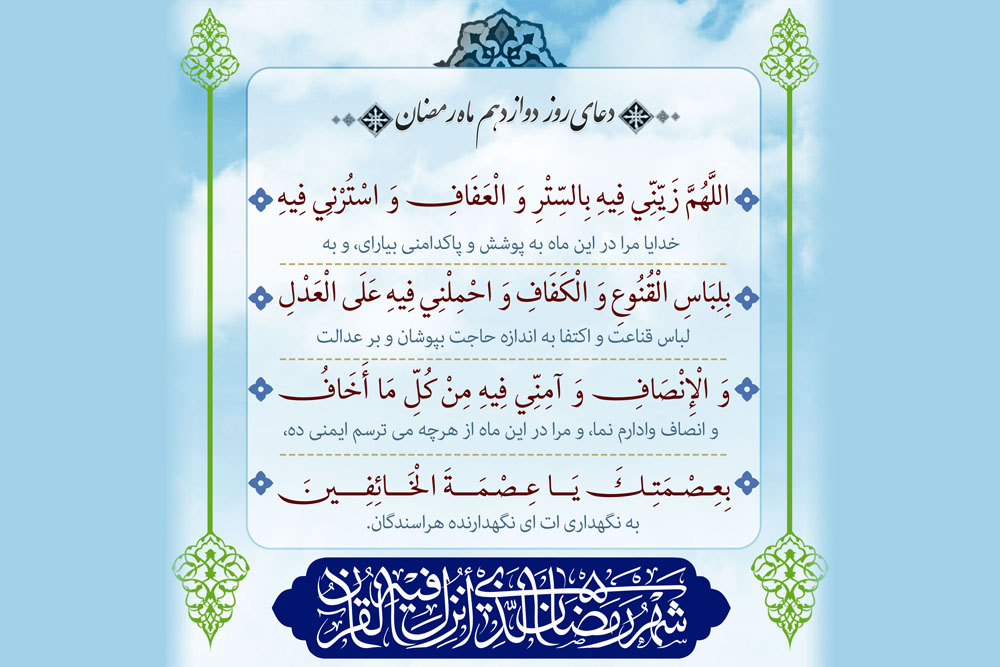 دعای روز دوازدهم ماه رمضان
اللَّهُمَّ زَيِّنِّي فِيهِ بِالسِّتْرِ وَ الْعَفَافِ وَ اسْتُرْنِي فِيهِ
خدایا مرا در این ماه به پوشش و پاکدامنی بیارای، و به
بِلِبَاسِ الْقُنُوعِ وَ الْكَفَافِ وَ احْمِلْنِي فِيهِ عَلَى الْعَدْلِ
لباس قناعت و اکتفا به اندازه حاجت بپوشان و بر عدالت
وَ الْإِنْصَافِ وَ آمِنِّي فِيهِ مِنْ كُلِّ مَا أَخَافُ
و انصاف وادارم نما، و مرا در این ماه از هرچه می ترسم ایمنی ده،
بِعِصْمَتِكَ يَا عِصْمَةَ الْخَائِفِينَ
به نگهداری ات ای نگهدارنده هراسندگان.
شَهْرُ رَمَضَانَ الَّذِي أُنْزِلَ فِيهِ الْقُرْآنُ